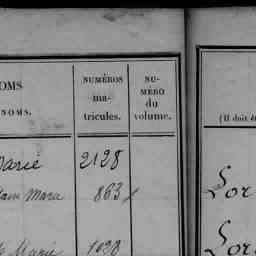 OMS
NOMS.
NUMÉROS
ma-
tricules.
NU-
MÉRO
du
volume.
(Il doit ê
Marie 2128
Mara 863
Lor
Marie 1028
Lor